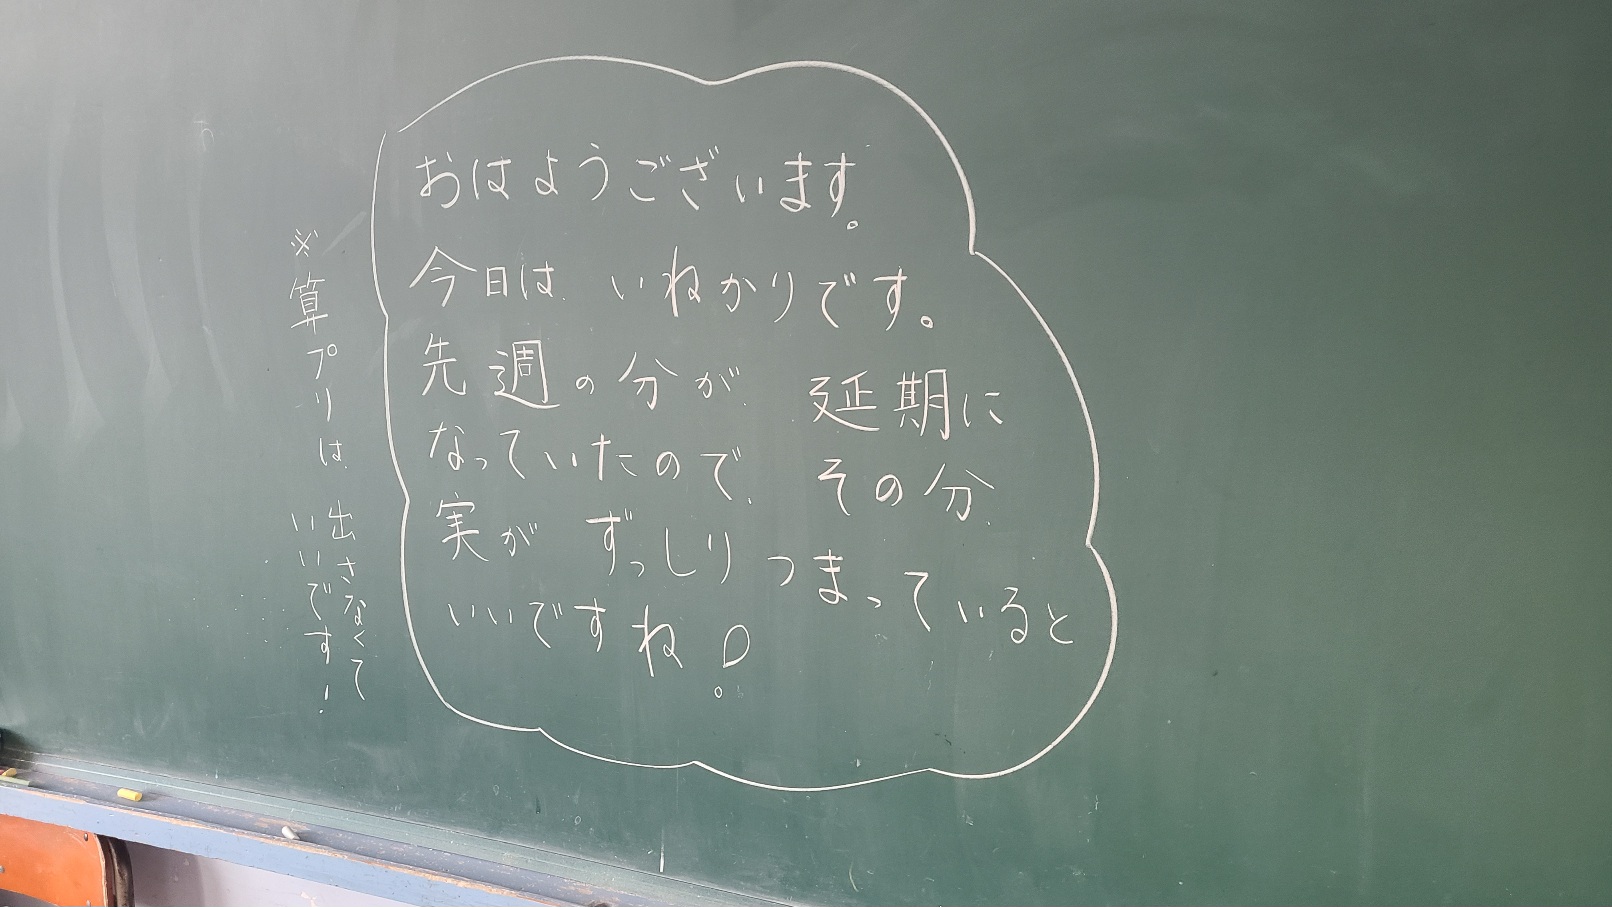 おはようございます。
今日は、いねかりです。
先週の分が、延期に
なっていたので、その分、
実がずっしりつまっていると
いいですね!
※算プリは、出さなくて
いいです!